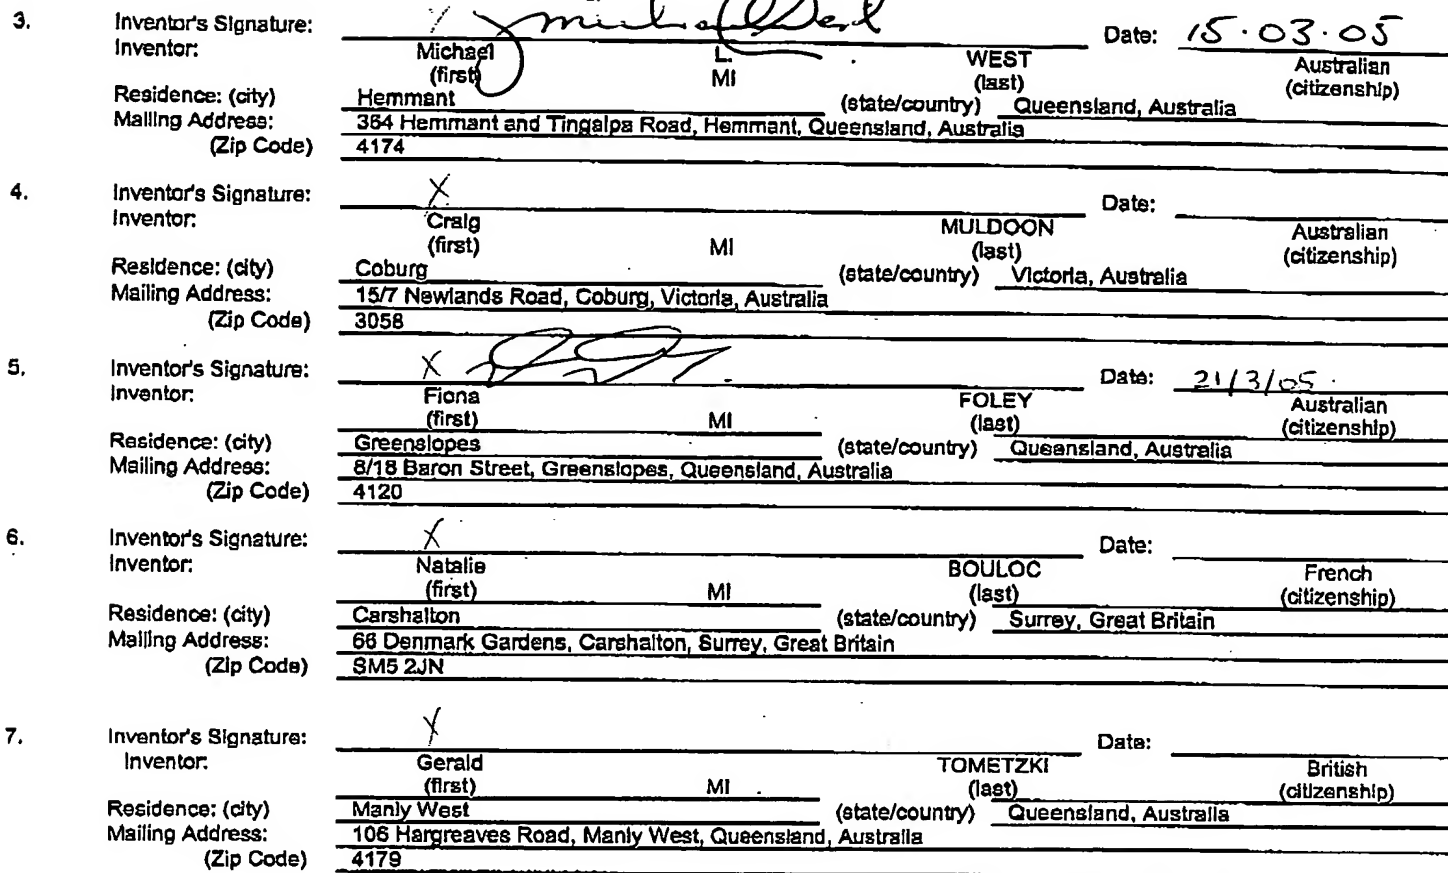 3. Inventor's Signature: Michael West Date: 15·03·05
Inventor: Michael L. WEST Australian
(first) MI (last) (citizenship)
Residence: (city) Hemmant (state/country) Queensland, Australia
Mailing Address: 364 Hemmant and Tingalpa Road, Hemmant, Queensland, Australia
(Zip Code) 4174
4. Inventor's Signature: X Date:
Inventor: Craig MULDOON Australian
(first) MI (last) (citizenship)
Residence: (city) Coburg (state/country) Victoria, Australia
Mailing Address: 15/7 Newlands Road, Coburg, Victoria, Australia
(Zip Code) 3058
5. Inventor's Signature: X Date: 21/3/05.
Inventor: Fiona FOLEY Australian
(first) MI (last) (citizenship)
Residence: (city) Greenslopes (state/country) Queensland, Australia
Mailing Address: 8/18 Baron Street, Greenslopes, Queensland, Australia
(Zip Code) 4120
6. Inventor's Signature: X Date:
Inventor: Natalie BOULOC French
(first) MI (last) (citizenship)
Residence: (city) Carshalton (state/country) Surrey, Great Britain
Mailing Address: 66 Denmark Gardens, Carshalton, Surrey, Great Britain
(Zip Code) SM5 2JN
7. Inventor's Signature: X Date:
Inventor: Gerald TOMETZKI British
(first) MI (last) (citizenship)
Residence: (city) Manly West (state/country) Queensland, Australia
Mailing Address: 106 Hargreaves Road, Manly West, Queensland, Australia
(Zip Code) 4179